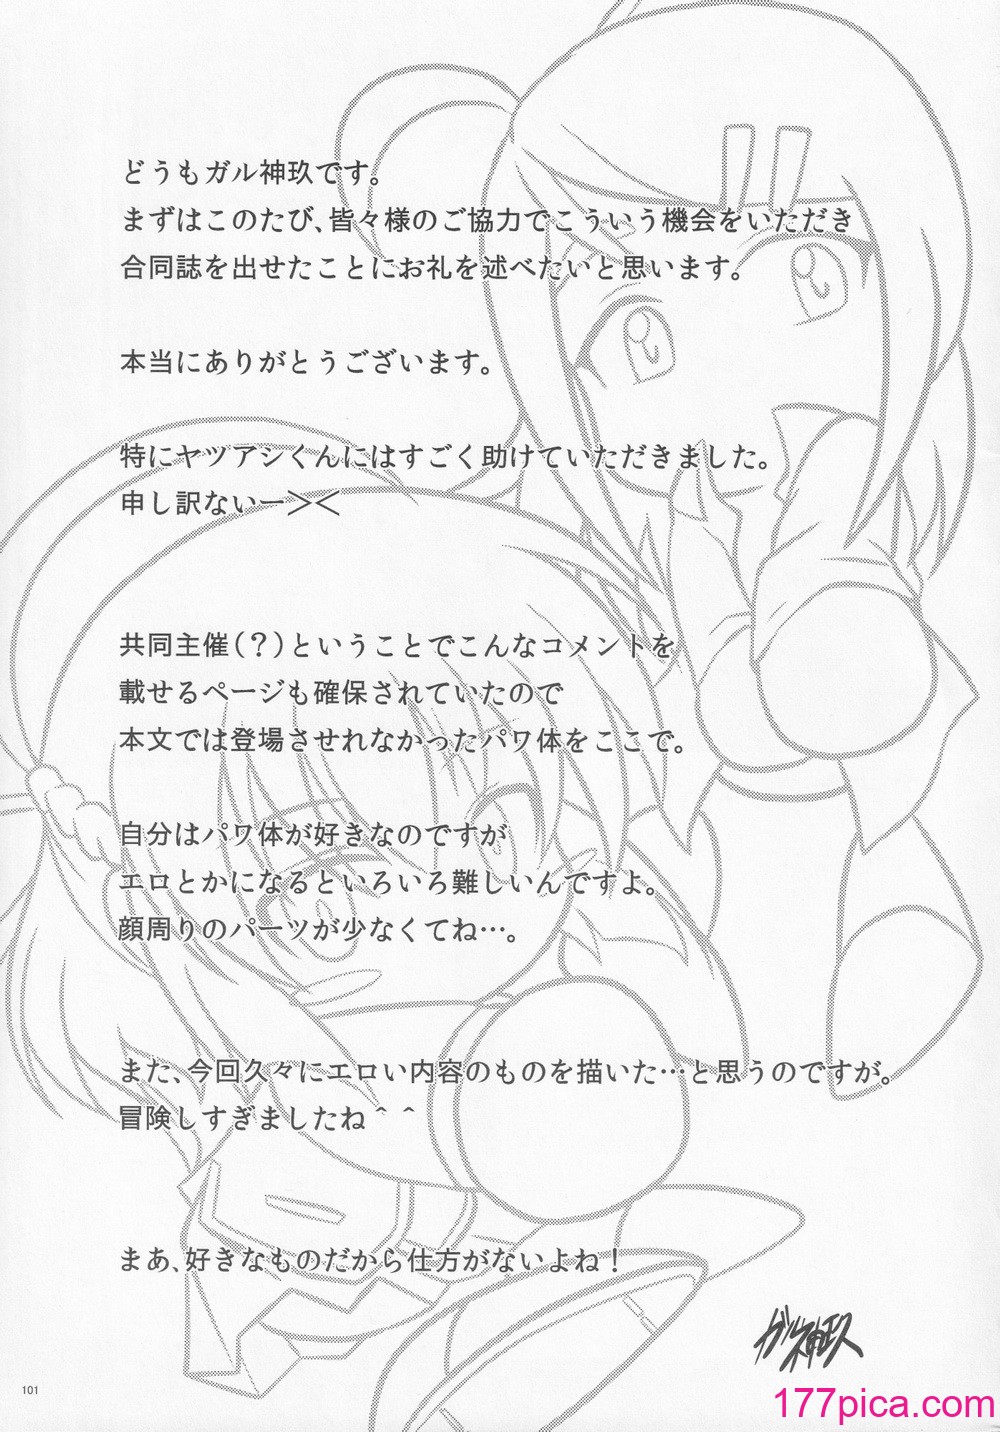 どうもガル神玖です。
まずはこのたび、皆々様のご協力でこういう機会をいただき
合同誌を出せたことにお礼を述べたいと思います。
本当にありがとうございます。
特にヤツアシくんにはすごく助けていただきました。
申し訳ないー＞＜
共同主催(？)ということでこんなコメントを
載せるページも確保されていたので
本文では登場させれなかったパワ体をここで。
自分はパワ体が好きなのですが
エロとかになるといろいろ難しいんですよ。
顔周りのパーツが少なくてね…。
また、今回久々にエロい内容のものを描いた…と思うのですが。
冒険しすぎましたね＾＾
まあ、好きなものだから仕方がないよね！
ガル神玖
101
177pica.com